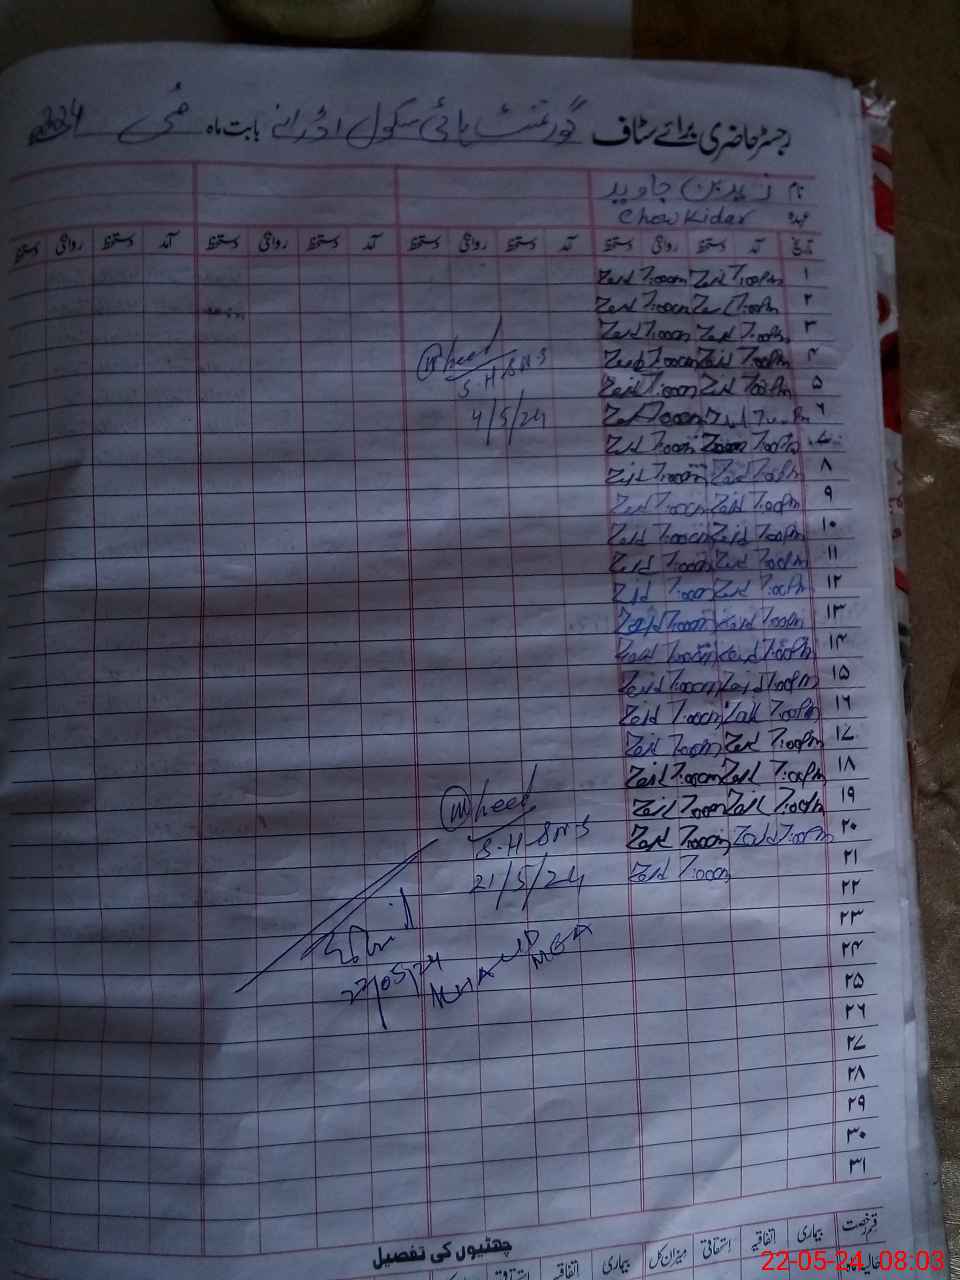 رجسٹر حاضری برائے سٹاف گورنمنٹ ہائی سکول بابت ماہ مئی 2024
نام زید بن جاوید
عہدہ Chowkidar
تاریخ آمد دستخط روانگی دستخط آمد دستخط روانگی دستخط آمد دستخط روانگی دستخط آمد دستخط روانگی دستخط
۱ 7:00Pm Zaid 7:00am Zaid
۲ 7:00Pm Zaid 7:00am Zaid
۳ 7:00Pm Zaid 7:00am Zaid
۴ 7:00Pm Zaid 7:00am Zaid
۵ 7:00Pm Zaid 7:00am Zaid
۶ 7:00Pm Zaid 7:00am Zaid
۷ 7:00Pm Zaid 7:00am Zaid
۸ 7:00Pm Zaid 7:00am Zaid
۹ 7:00Pm Zaid 7:00am Zaid
۱۰ 7:00Pm Zaid 7:00am Zaid
۱۱ 7:00Pm Zaid 7:00am Zaid
۱۲ 7:00Pm Zaid 7:00am Zaid
۱۳ 7:00Pm Zaid 7:00am Zaid
۱۴ 7:00Pm Zaid 7:00am Zaid
۱۵ 7:00Pm Zaid 7:00am Zaid
۱۶ 7:00Pm Zaid 7:00am Zaid
۱۷ 7:00Pm Zaid 7:00am Zaid
۱۸ 7:00Pm Zaid 7:00am Zaid
۱۹ 7:00Pm Zaid 7:00am Zaid
۲۰ 7:00Pm Zaid 7:00am Zaid
۲۱ 7:00am Zaid
۲۲
۲۳
۲۴
۲۵
۲۶
۲۷
۲۸
۲۹
۳۰
۳۱
4/5/24
21/5/24
22/05/24
MEA
چھٹیوں کی تفصیل
قسم رخصت بیماری اتفاقیہ استحقاقی میزان کل بیماری اتفاقیہ استحقاقی
22-05-24 08:03